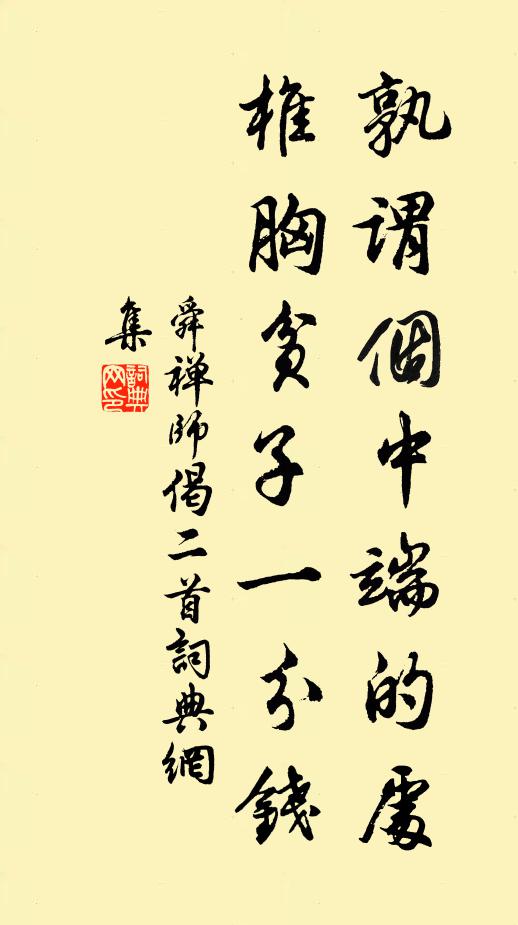 孰謂個中端的處
椎胸貧子一分錢
舜禪師偈二首詞典網
集
詞典
网印